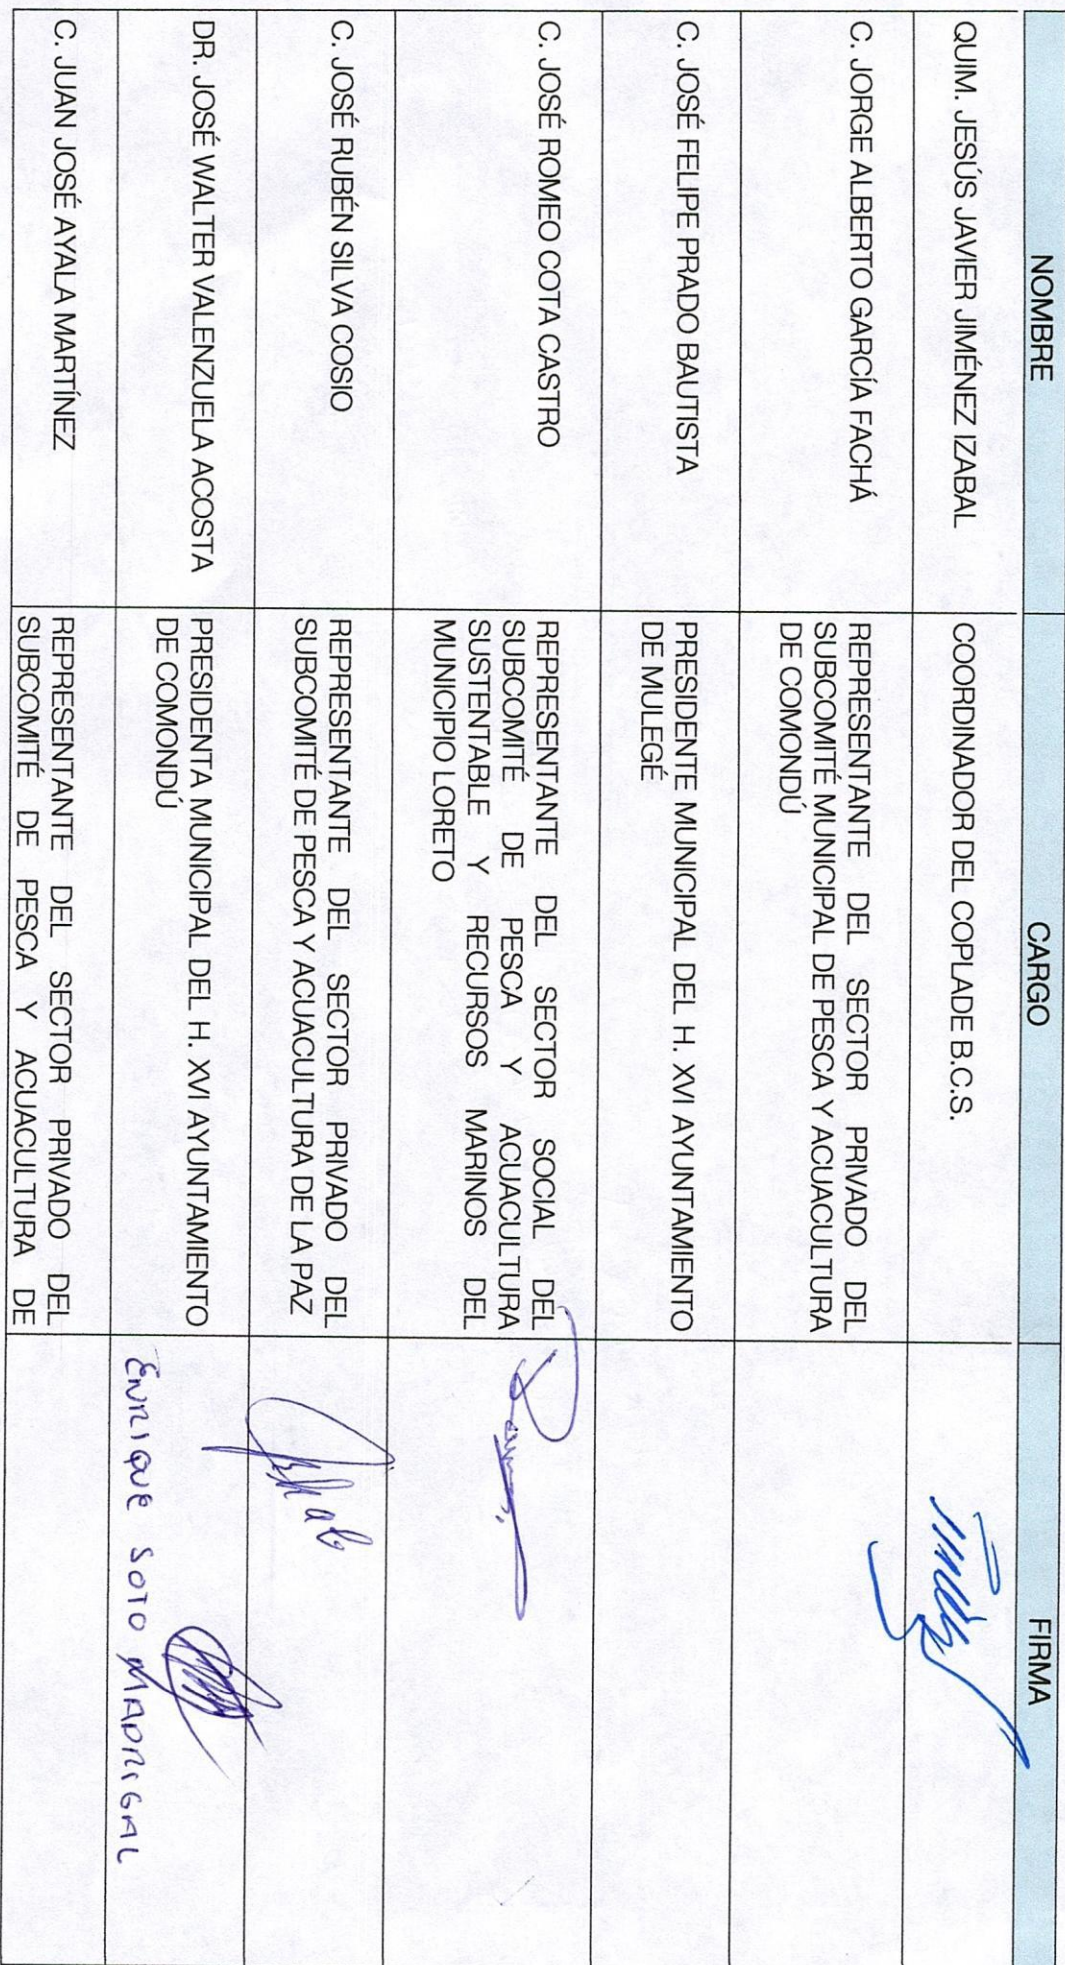 NOMBRE CARGO FIRMA
QUIM. JESÚS JAVIER JIMÉNEZ IZABAL COORDINADOR DEL COPLADE B.C.S.
C. JORGE ALBERTO GARCÍA FACHÁ REPRESENTANTE DEL SECTOR PRIVADO DEL
SUBCOMITÉ MUNICIPAL DE PESCA Y ACUACULTURA
DE COMONDÚ
C. JOSÉ FELIPE PRADO BAUTISTA PRESIDENTE MUNICIPAL DEL H. XVI AYUNTAMIENTO
DE MULEGÉ
C. JOSÉ ROMEO COTA CASTRO REPRESENTANTE DEL SECTOR SOCIAL DEL
SUBCOMITÉ DE PESCA Y ACUACULTURA
SUSTENTABLE Y RECURSOS MARINOS DEL
MUNICIPIO LORETO
C. JOSÉ RUBÉN SILVA COSIO REPRESENTANTE DEL SECTOR PRIVADO DEL
SUBCOMITÉ DE PESCA Y ACUACULTURA DE LA PAZ
DR. JOSÉ WALTER VALENZUELA ACOSTA PRESIDENTA MUNICIPAL DEL H. XVI AYUNTAMIENTO
DE COMONDÚ
ENRIQUE SOTO MADRIGAL
C. JUAN JOSÉ AYALA MARTÍNEZ REPRESENTANTE DEL SECTOR PRIVADO DEL
SUBCOMITÉ DE PESCA Y ACUACULTURA DE